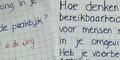 ong in je
de praktijk?
in de weg
Hoe denken
bereikbaarheid
voor mensen
in je omgev
Heb je voorbe